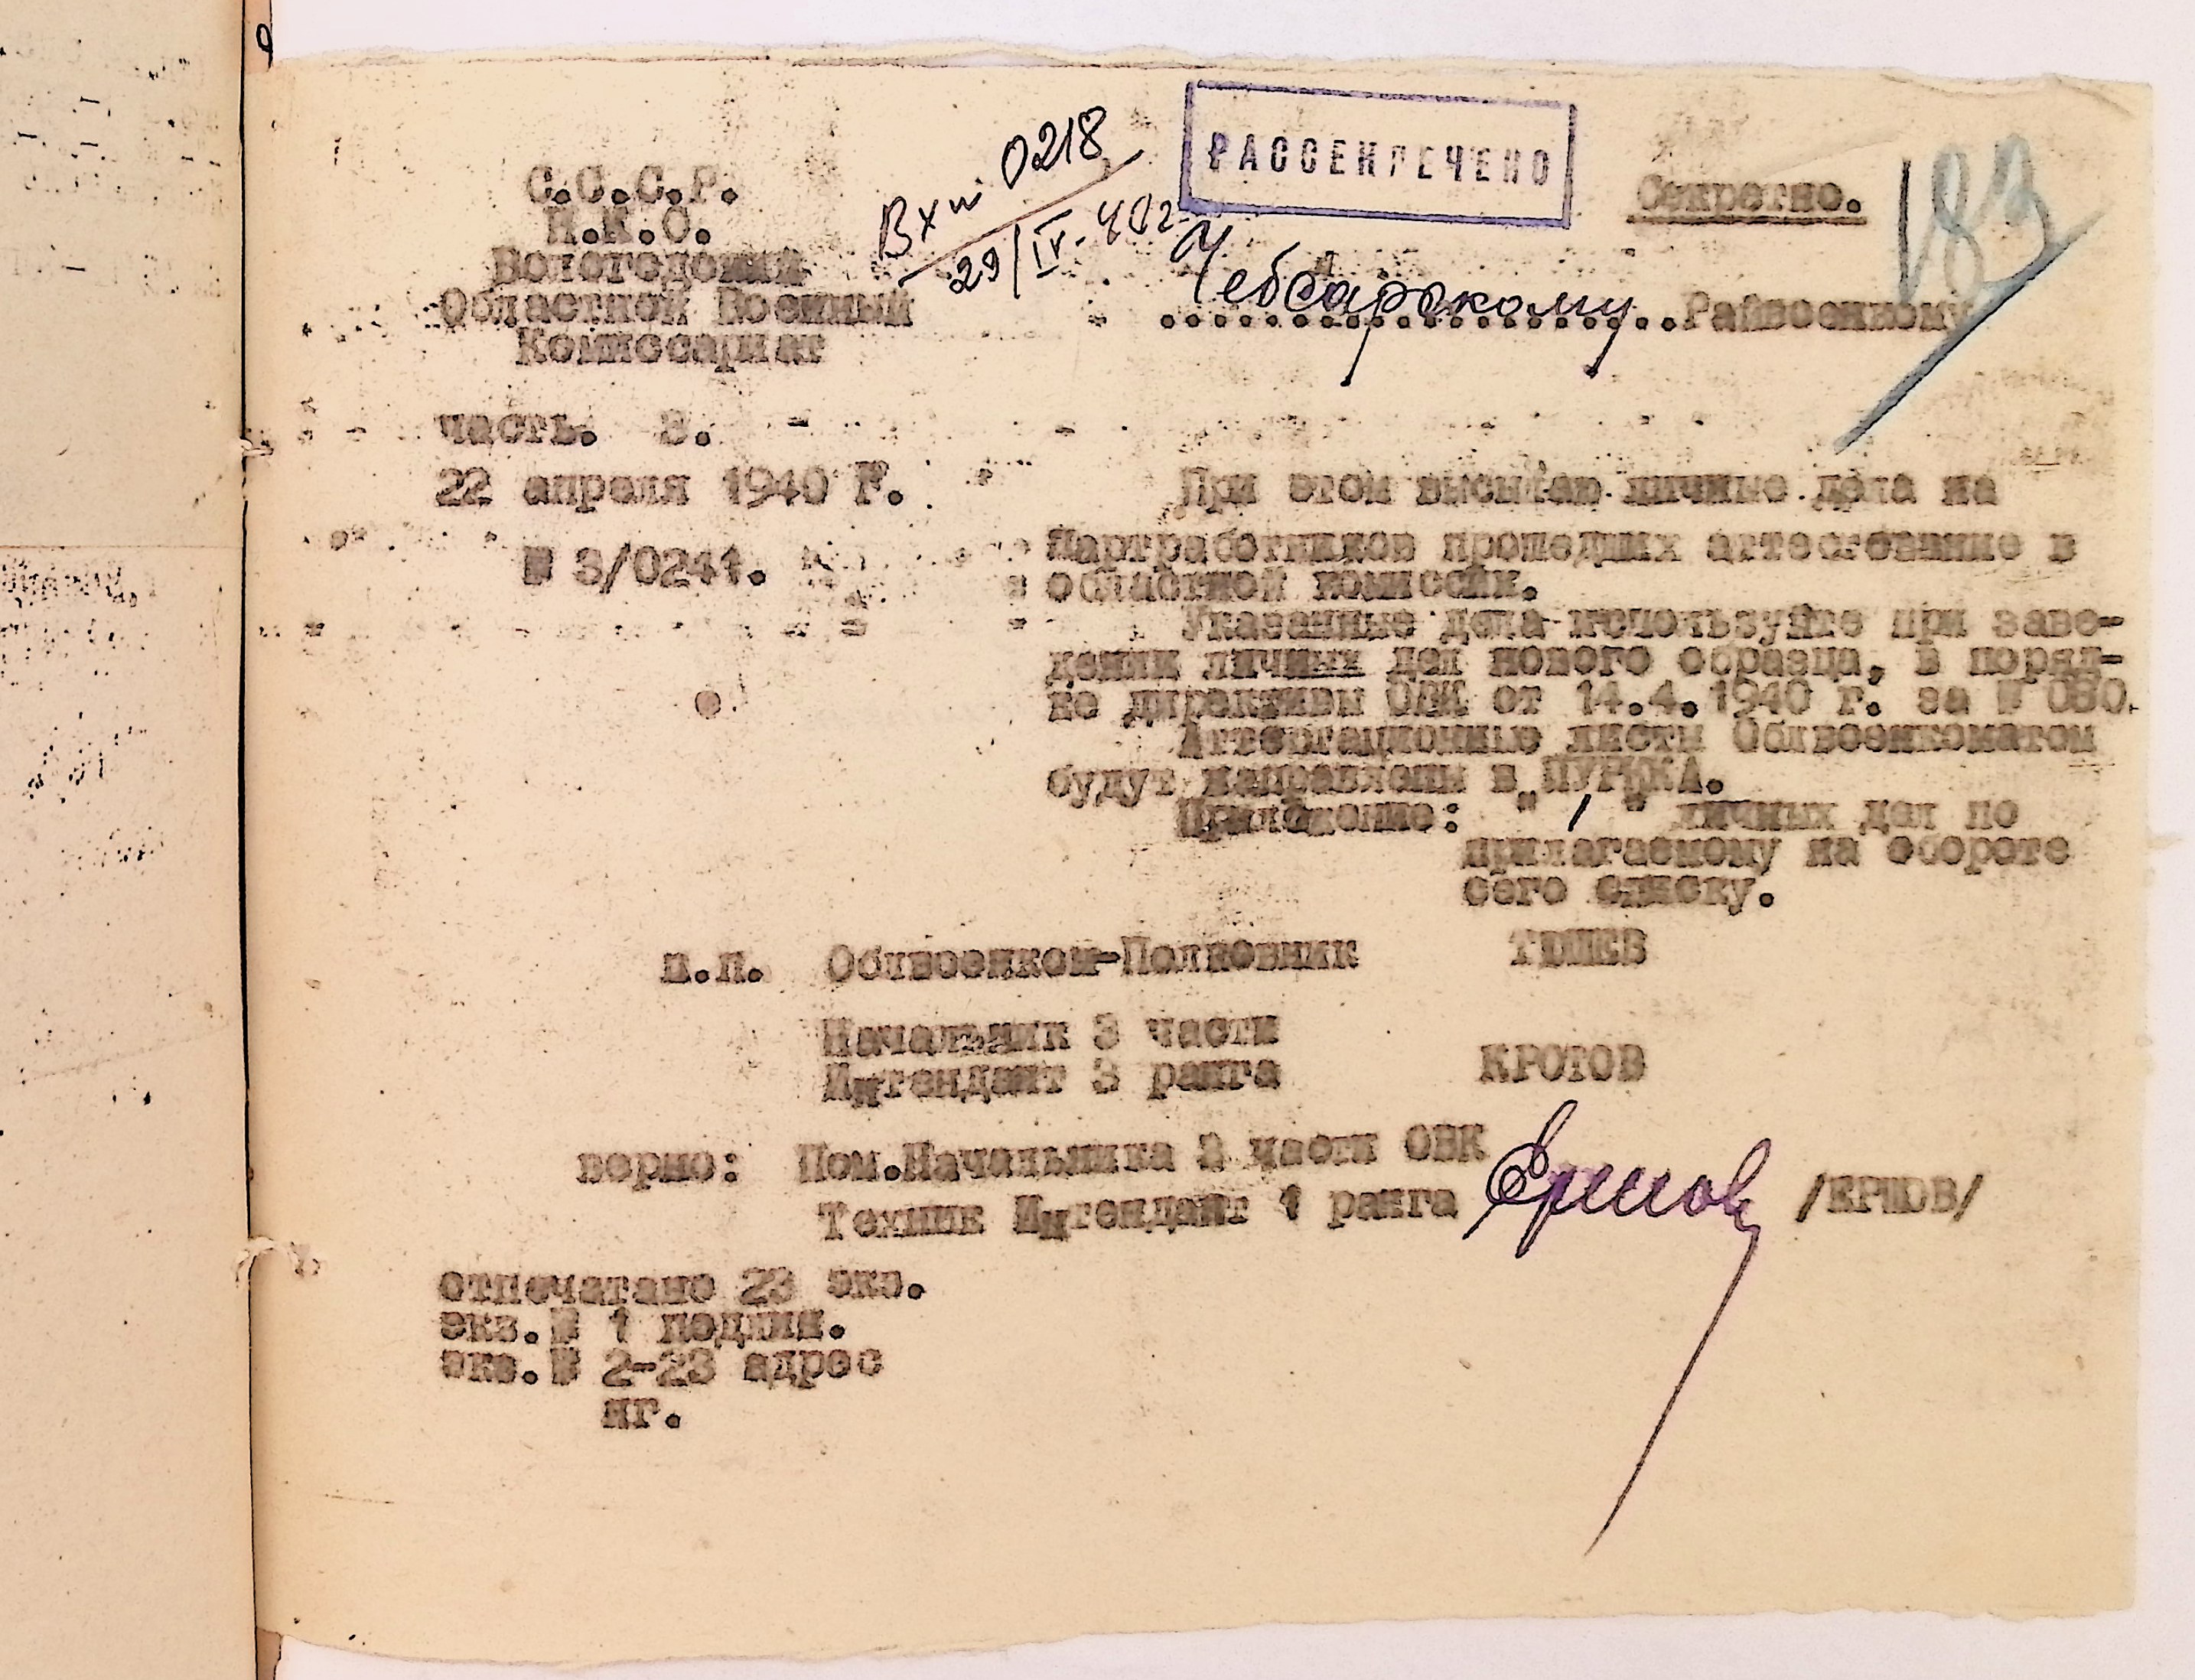 С.С.С.Р.
Н.К.О.
Вологодский
Областной Военный
Комиссариат
часть. 3.
22 апреля 1940 г.
№ 3/0241.
Вх № 0218
29/IV-40г
РАССЕКРЕЧЕНО
Секретно.
183
Чебсарскому Райвоенкому
При этом высылаю личные дела на
Партработников прошедших аттестование в
областной комиссии.
Указанные дела используйте при заве-
дении личных дел нового образца, в поряд-
ке директивы ОВК от 14.4.1940 г. за № 080.
Аттестационные листы Облвоенкоматом
будут направлены в „ПУРККА.
Приложение: " 1 " личных дел по
прилагаемому на обороте
сего списку.
п.п. Облвоенком-Полковник
Начальник 3 части
Интендант 3 ранга КРОТОВ
верно: Пом.Начальника 3 части ОВК
Техник Интендант 1 ранга Ершов /ЕРШОВ/
отпечатано 23 экз.
экз.№ 1 подлин.
экз.№ 2-23 адрес
нг.